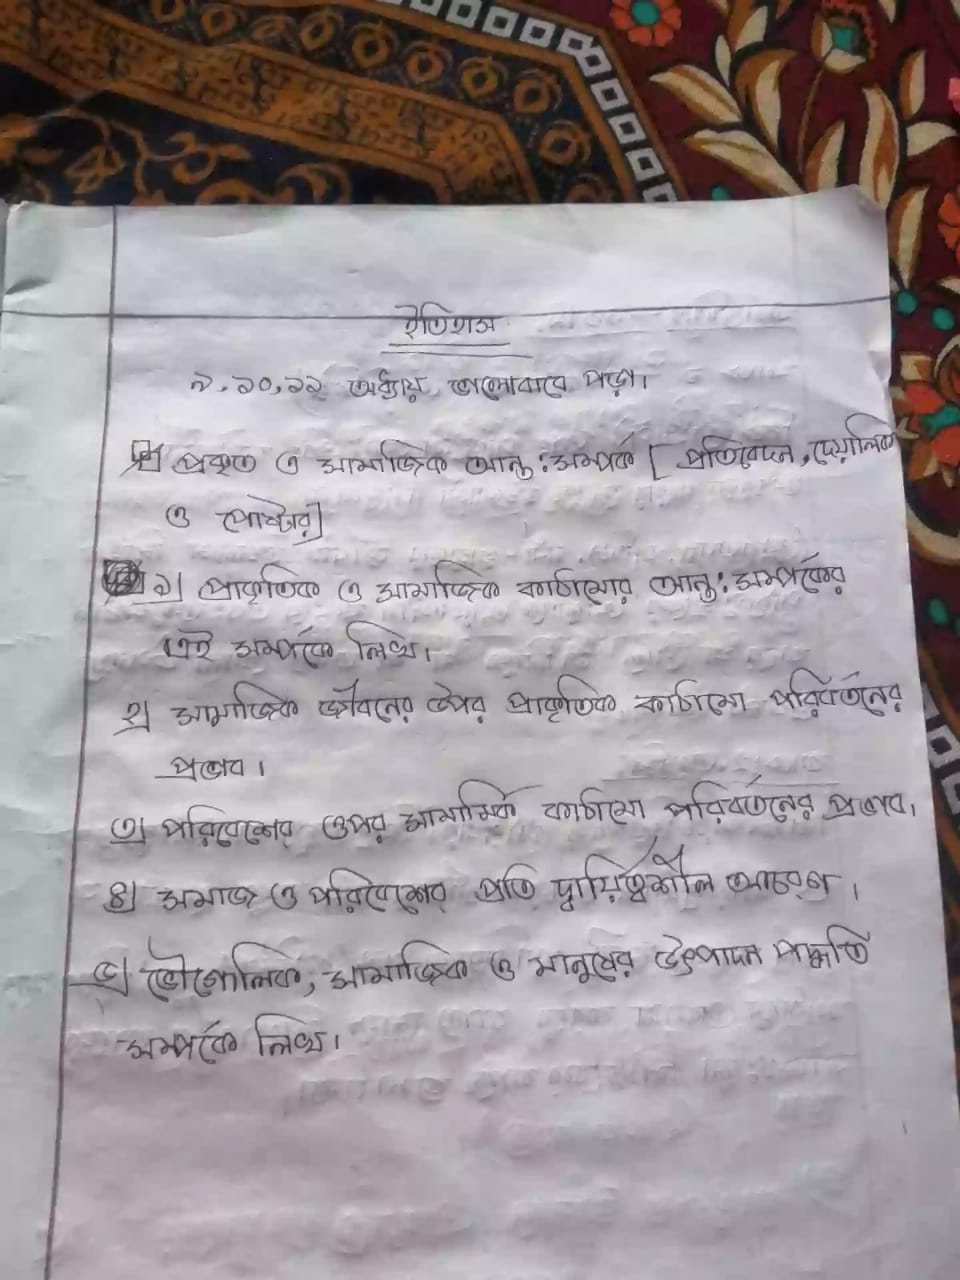 ইতিহাস
৯,১০,১২ অধ্যায় ভালোবাবে পড়া।
প্রকৃত ও সামাজিক আন্ত:সম্পর্ক [ প্রতিবেদন, দেয়ালিকা
ও পোষ্টার]
১) প্রাকৃতিক ও সামাজিক কাঠামোর আন্ত:সম্পর্কের
এই সম্পর্কে লিখ।
২) সামাজিক জীবনের উপর প্রাকৃতিক কাঠামো পরিবর্তনের
প্রভাব।
৩) পরিবেশের ওপর সামামিক কাঠামো পরিবর্তনের প্রভাব।
৪) সমাজ ও পরিবেশের প্রতি দ্বায়িত্বশীল আচরণ।
৫) ভৌগোলিক, সামাজিক ও মানুষের উৎপাদন পদ্ধতি
সম্পর্কে লিখ।